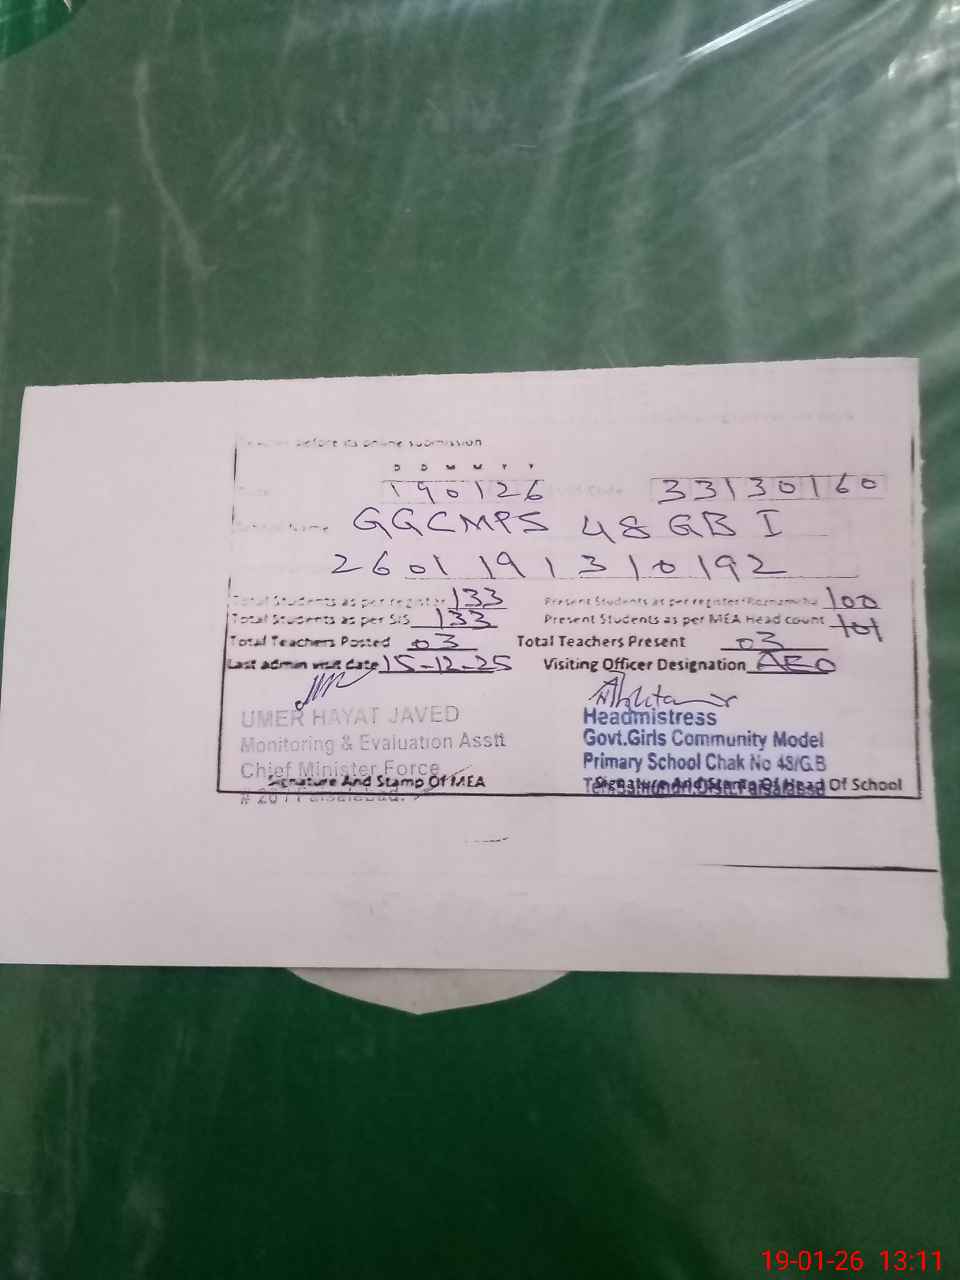 before its online submission
D D M M Y Y
Date 190126 Code 33130160
School Name GGCMPS 48 GB I
2601191310192
Total Students as per register 133 Present Students as per register/Roznamcha 100
Total Students as per SIS 133 Present Students as per MEA Head count 101
Total Teachers Posted 03 Total Teachers Present 03
Last admin visit date 15-12-25 Visiting Officer Designation AEO
UMER HAYAT JAVED
Monitoring & Evaluation Asstt
Chief Minister Force
Signature And Stamp Of MEA
Faisalabad.
Headmistress
Govt.Girls Community Model
Primary School Chak No 48/G.B
Signature And Stamp Of Head Of School
19-01-26 13:11